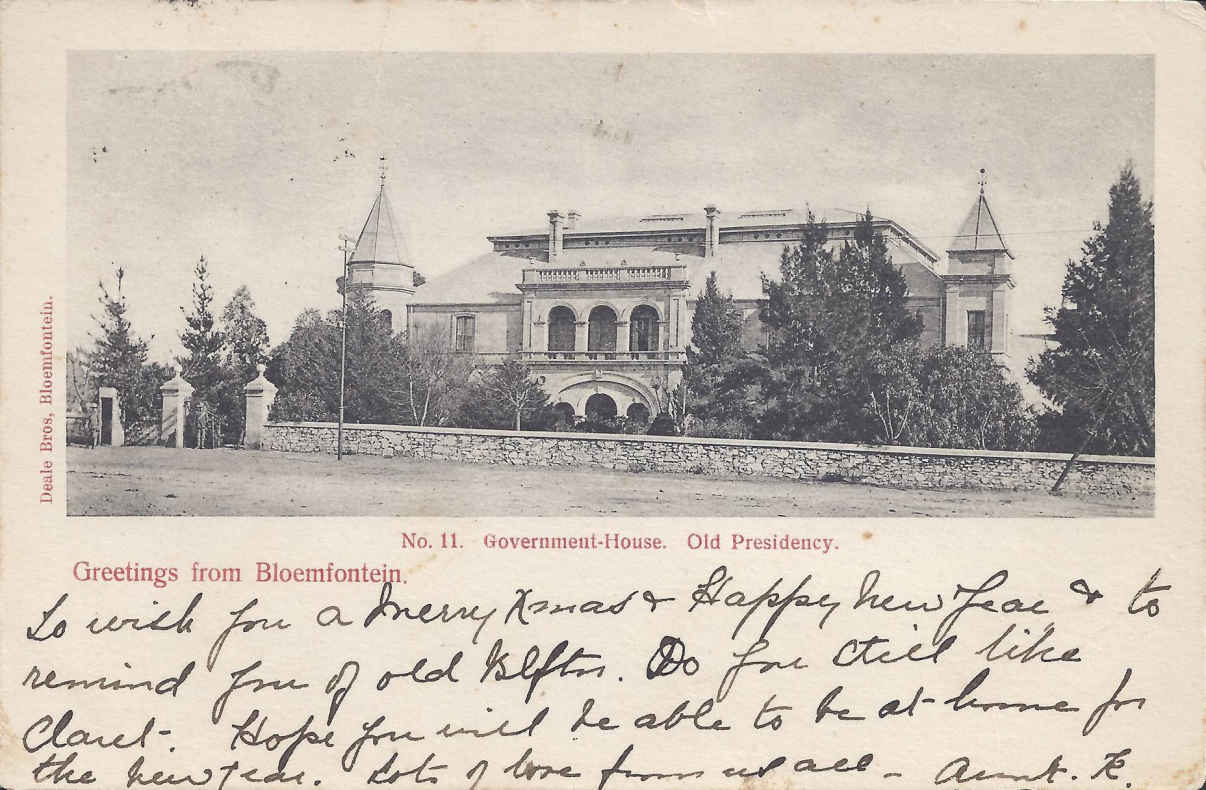 Deale Bros, Bloemfontein.
No. 11. Government-House. Old Presidency.
Greetings from Bloemfontein.
To wish you a Merry Xmas & Happy New Year & to
remind you of old Blftn. Do you still like
Claret. Hope you will be able to be at home for
the New Year. Lots of love from us all - Aunt. K.